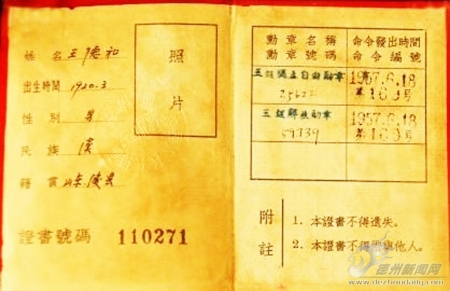 姓名 王德和
出生時間 1920.3
性別 男
民族 漢
籍貫 山东陵县
照片
證書號碼 110271
勳章名稱 勳章號碼
命令發出時間 命令編號
三級獨立自由勳章 1957.6.18
25622 第163号
三級解放勳章 1957.6.18
49739 第163号
附註
1. 本證書不得遺失。
2. 本證書不得轉與他人。
德州新闻网
www.dezhoudaily.com